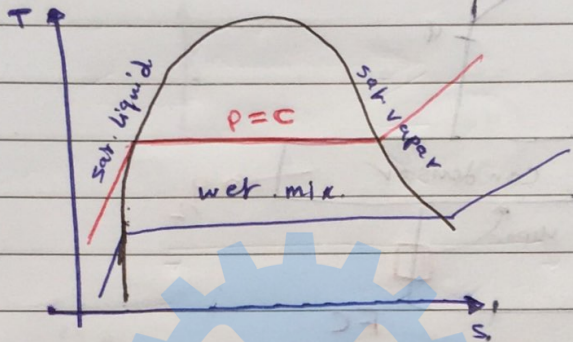 T
sat. liquid
sat vapar
P = C
wet. mix.
s.